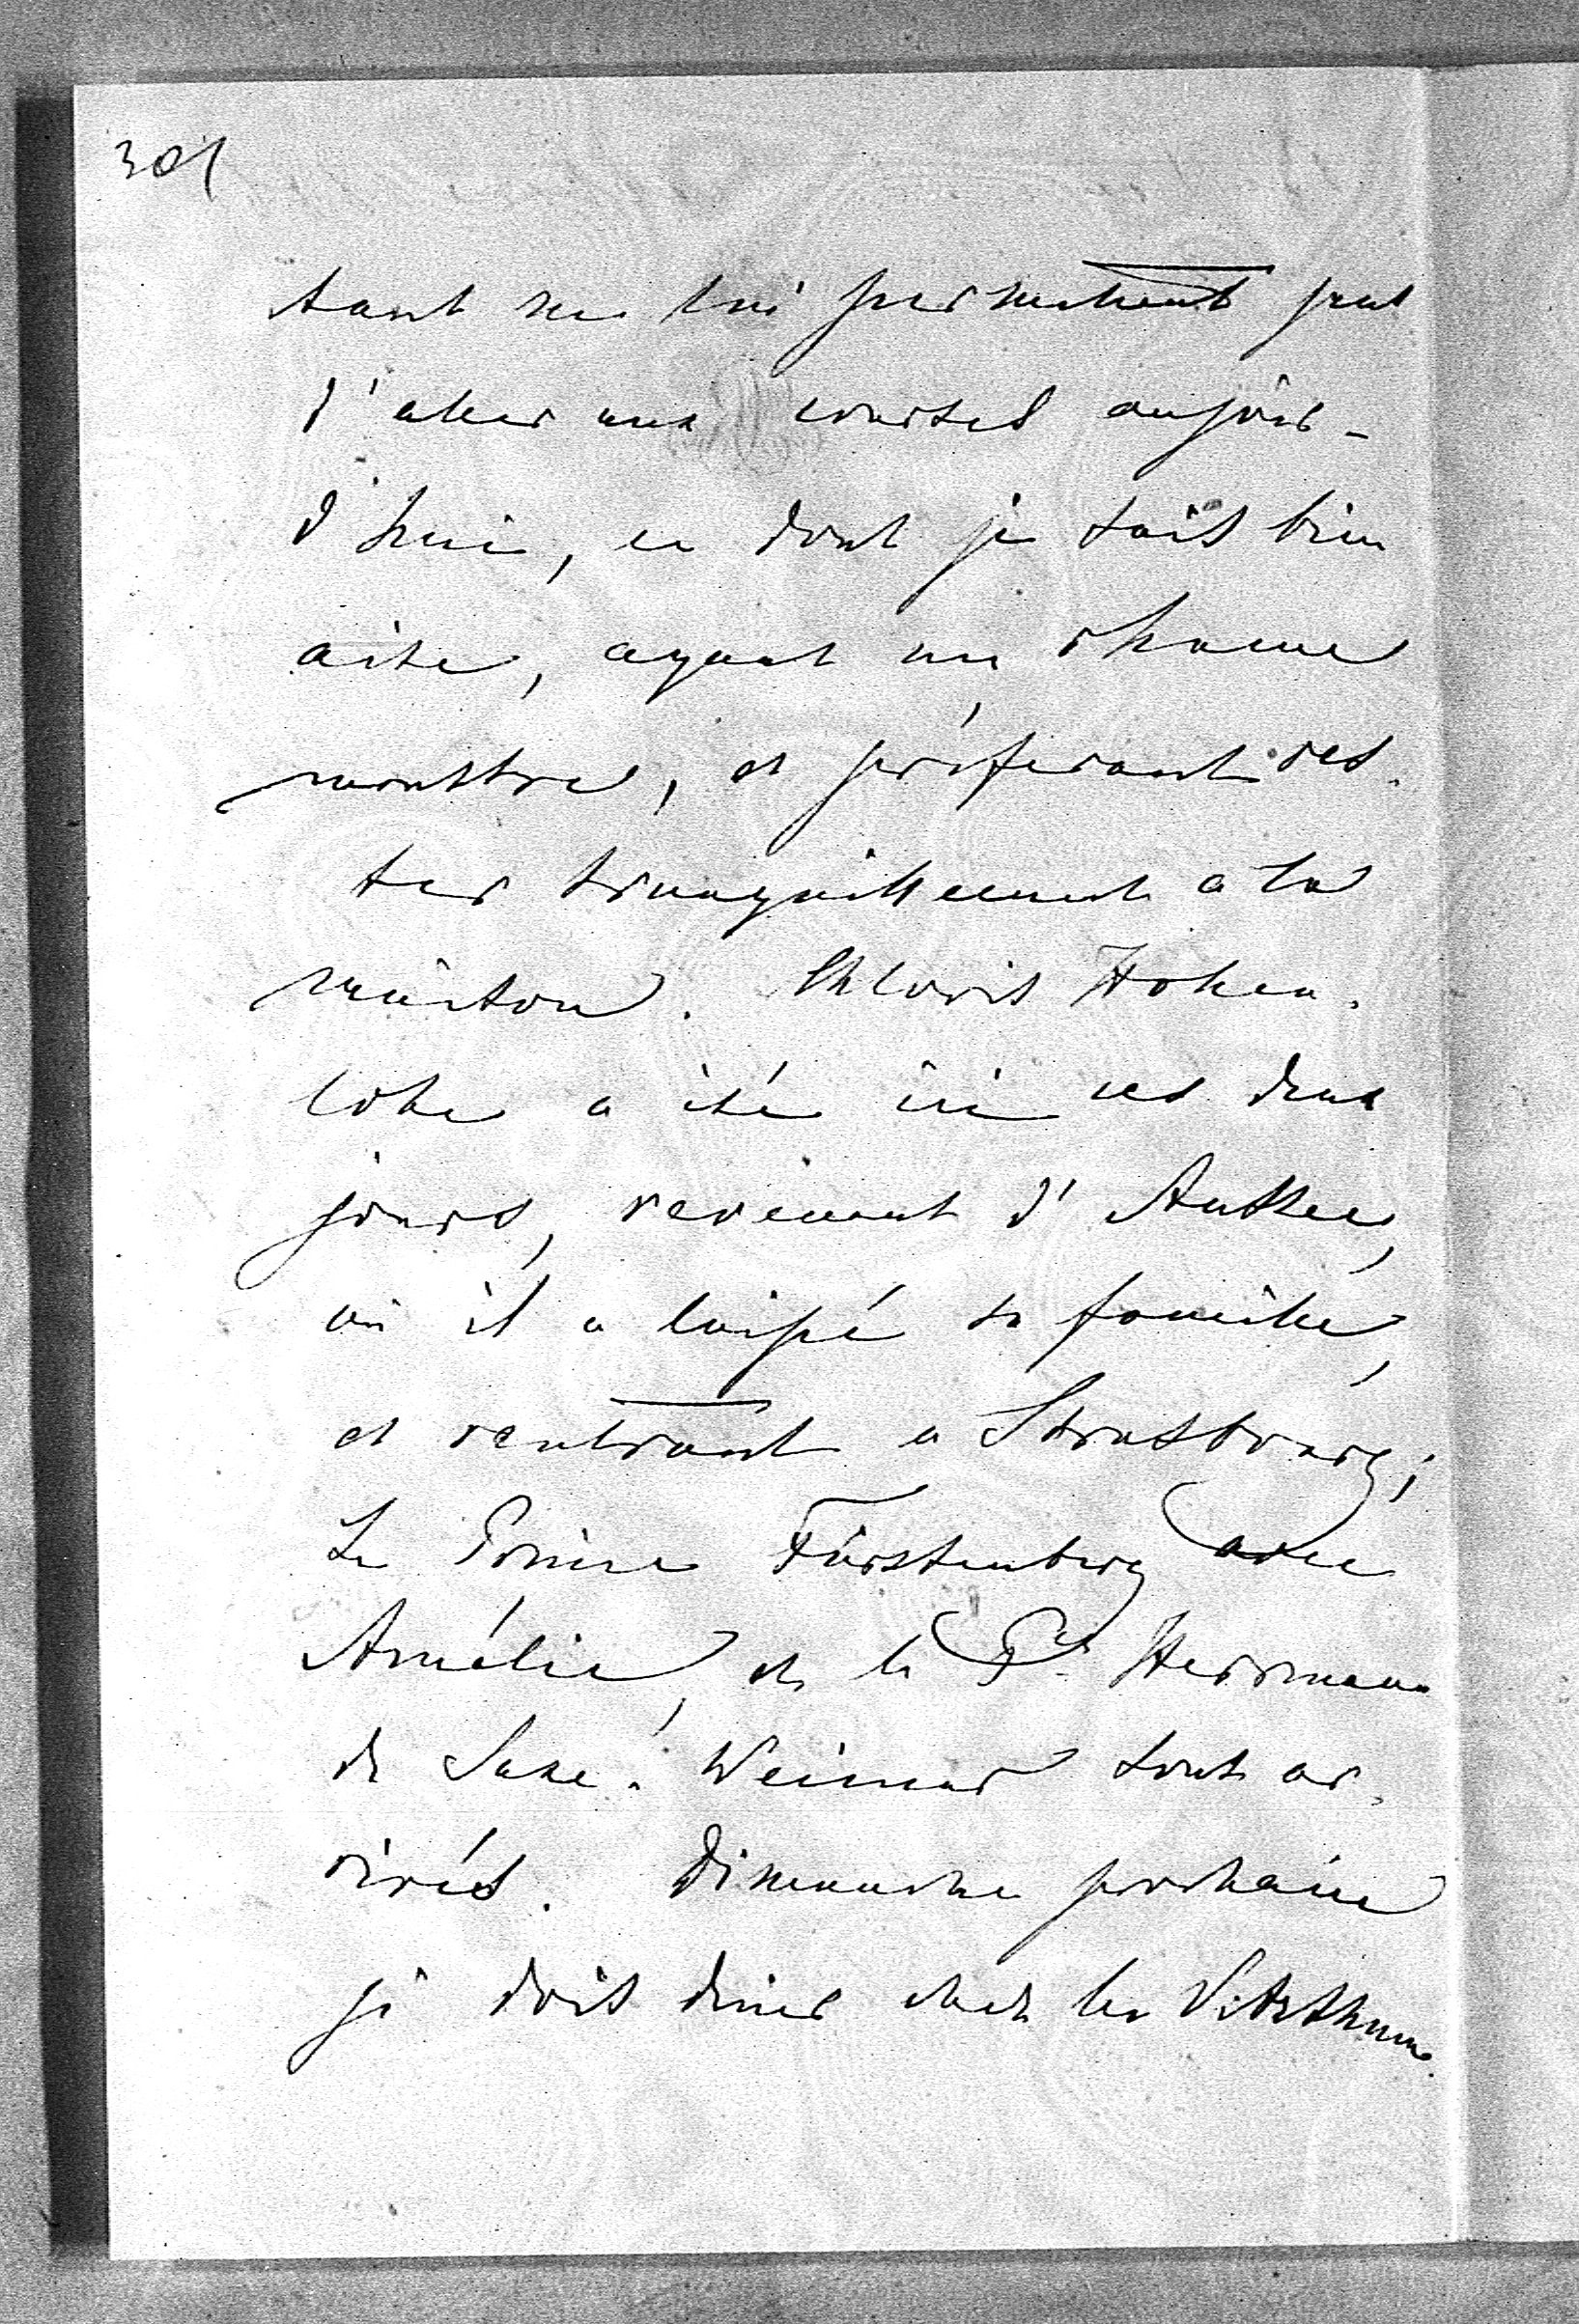 301
tant ne lui permettent pas
d'aller aux courses aujour-
d'hui, ce dont je suis bien
aise, ayant un rhume
monstre, et préférant res-
ter tranquillement à la
maison. Chlovis Hohen-
lohe a été ici ces deux
jours, revenant d'Aussee,
où il a laissé sa famille,
et rentrant à Strasbourg;
Le Prince Fürstenberg avec
Amélie, et le Pce Herrmann
de Saxe-Weimar sont ar-
rivés. Dimanche prochain
je dois diner chez les Vitzthum.